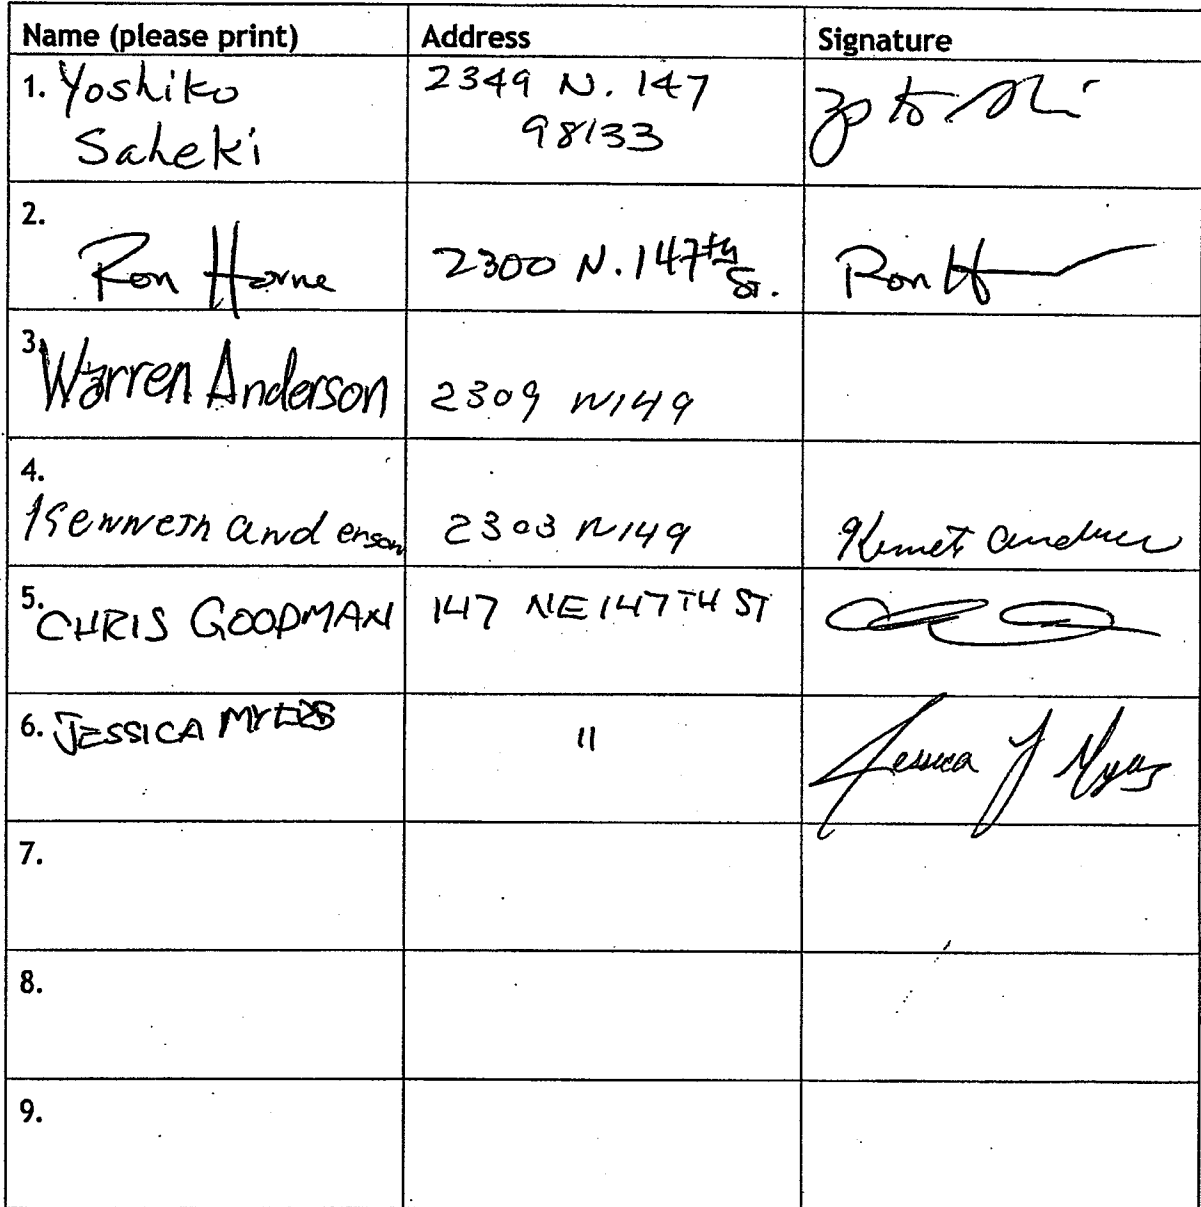 Name (please print) Address Signature
1. Yoshiko 2349 N. 147
Saheki 98133
2.
Ron Horne 2300 N. 147th St. Ron H
3. Warren Anderson 2309 N149
4.
Kenneth anderson 2303 N149 Kennet anderson
5. CHRIS GOODMAN 147 NE 147TH ST
6. JESSICA MYERS " Jessica J Myers
7.
8.
9.